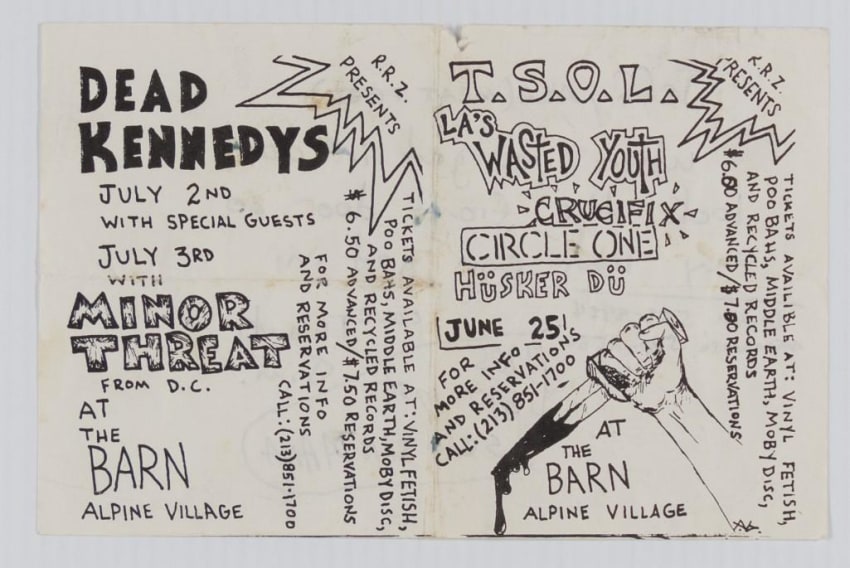 DEAD
KENNEDYS
JULY 2ND
WITH SPECIAL GUESTS
JULY 3RD
WITH
MINOR
THREAT
FROM D.C.
AT
THE
BARN
ALPINE VILLAGE
R.R.Z.
PRESENTS
TICKETS AVAILABLE AT: VINYL FETISH,
POO BAHS, MIDDLE EARTH, MOBY DISC,
AND RECYCLED RECORDS
$6.50 ADVANCED/$7.50 RESERVATIONS
FOR MORE INFO
AND RESERVATIONS
CALL: (213) 851-1700
T.S.O.L.
LA'S
WASTED YOUTH
CRUCIFIX
CIRCLE ONE
HÜSKER DÜ
JUNE 25!
FOR
MORE INFO
AND RESERVATIONS
CALL: (213) 851-1700
AT
THE
BARN
ALPINE VILLAGE
R.R.Z.
PRESENTS
TICKETS AVAILIBLE AT: VINYL FETISH,
POO BAHS, MIDDLE EARTH, MOBY DISC,
AND RECYCLED RECORDS
ADVANCED/ RESERVATIONS